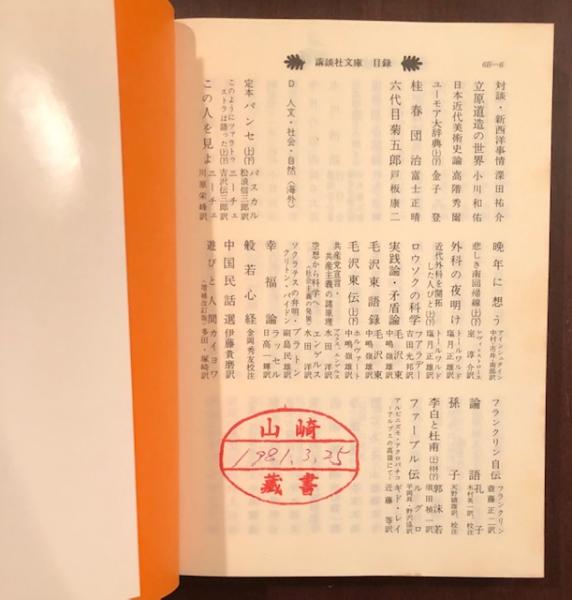 講談社文庫 目録
6B-6
対談・新西洋事情 深田祐介
立原道造の世界 小川和佑
日本近代美術史論 高階秀爾
ユーモア大辞典(上)(下) 金子登
桂春団治 富士正晴
六代目菊五郎 戸板康二
D 人文・社会・自然《海外》
定本パンセ(上)(下) パスカル 松浪信三郎訳
このようにツァラトゥストラは語った(上)(下) ニーチェ 吉沢伝三郎訳
この人を見よ ニーチェ 川原栄峰訳
晩年に想う アインシュタイン 中村・南部・市井訳
悲しき南回帰線(上)(下) レヴィ＝ストロース 室淳介訳
外科の夜明け トールワルド 塩月正雄訳
近代外科を開拓した人びと(上)(下) トールワルド 塩月正雄訳
ロウソクの科学 ファラデー 吉田光邦訳
実践論・矛盾論 毛沢東 中嶋嶺雄訳
毛沢東語録 毛沢東 中嶋嶺雄訳
毛沢東伝(上)(下) ホルヴァート 中嶋嶺雄訳
共産党宣言・共産主義の諸原理 マルクス、エンゲルス 水田洋訳
空想から科学へ《社会主義の発展》 エンゲルス 水田洋訳
ソクラテスの弁明・クリトン・パイドン プラトン 副島民雄訳
幸福論 ラッセル 日高一輝訳
般若心経 金岡秀友校注
中国民話選 伊藤貴麿訳
遊びと人間 カイヨワ 多田・塚崎訳
《増補改訂版》
フランクリン自伝 フランクリン 斎藤正二訳
論語 孔子 木村英一訳、校注
孫子 天野鎮雄訳、校注
李白と杜甫(上)(下) 郭沫若 須田禎一訳
ファーブル伝 ルグロ 平岡昇・野沢協訳
アルピニズモ・アクロバチコ —アルプスの高嶺にて— ギド・レイ 近藤等訳
山崎
1981.3.25
蔵書